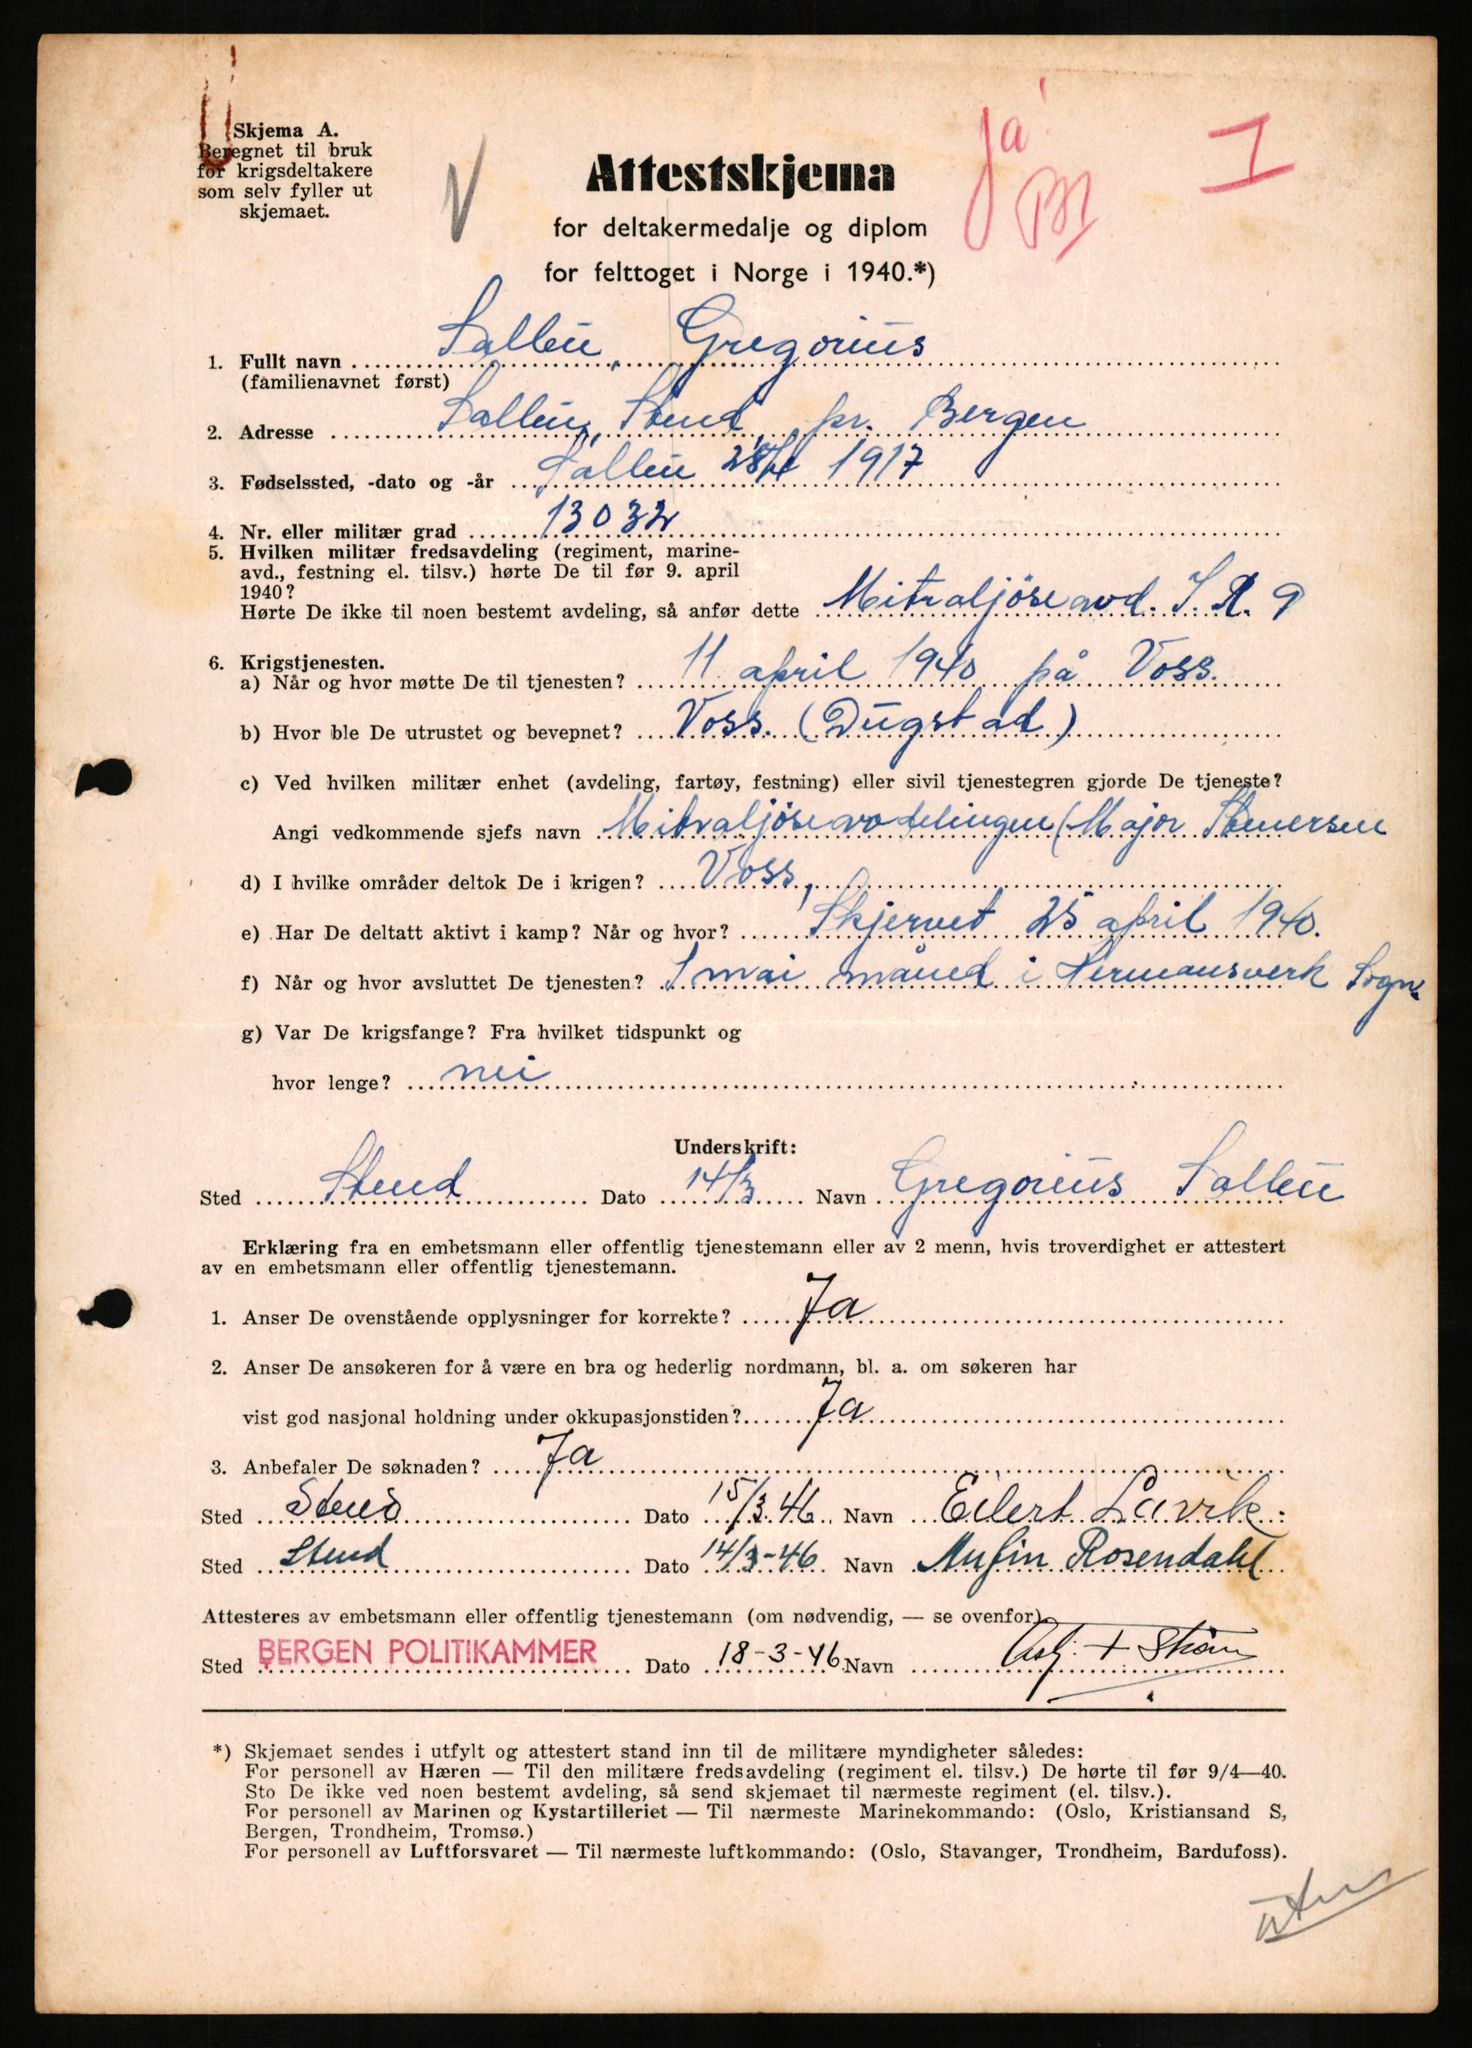 Skjema A.
Beregnet til bruk
for krigsdeltakere
som selv fyller ut
skjemaet.
V
Ja
I
Attestskjema
for deltakermedalje og diplom
for felttoget i Norge i 1940.*)
1. Fullt navn Sallen, Gregorius
(familienavnet først)
2. Adresse Sallen, Stend pr. Bergen
3. Fødselssted, -dato og -år Sallen 1917
4. Nr. eller militær grad 13032
5. Hvilken militær fredsavdeling (regiment, marine-
avd., festning el. tilsv.) hørte De til før 9. april
1940?
Hørte De ikke til noen bestemt avdeling, så anfør dette Mitraljöseavd. I.R. 9
6. Krigstjenesten.
a) Når og hvor møtte De til tjenesten? 11 april 1940 på Voss.
b) Hvor ble De utrustet og bevepnet? Voss. (Dugstad)
c) Ved hvilken militær enhet (avdeling, fartøy, festning) eller sivil tjenestegren gjorde De tjeneste?
Angi vedkommende sjefs navn Mitraljöseavdelingen (Major Stenersen
d) I hvilke områder deltok De i krigen? Voss,
e) Har De deltatt aktivt i kamp? Når og hvor? Skjervet 25 april 1940.
f) Når og hvor avsluttet De tjenesten? I mai måned i Hermansverk Sogn.
g) Var De krigsfange? Fra hvilket tidspunkt og
hvor lenge? nei
Underskrift:
Sted Stend Dato 14/3 Navn Gregorius Sallen
Erklæring fra en embetsmann eller offentlig tjenestemann eller av 2 menn, hvis troverdighet er attestert
av en embetsmann eller offentlig tjenestemann.
1. Anser De ovenstående opplysninger for korrekte? Ja
2. Anser De ansøkeren for å være en bra og hederlig nordmann, bl. a. om søkeren har
vist god nasjonal holdning under okkupasjonstiden? Ja
3. Anbefaler De søknaden? Ja
Sted Stend Dato 15/3.46 Navn Eilert Lavik.
Sted Stend Dato 14/3-46 Navn Rosendahl
Attesteres av embetsmann eller offentlig tjenestemann (om nødvendig, — se ovenfor)
Sted BERGEN POLITIKAMMER Dato 18-3-46 Navn
*) Skjemaet sendes i utfylt og attestert stand inn til de militære myndigheter således:
For personell av Hæren — Til den militære fredsavdeling (regiment el. tilsv.) De hørte til før 9/4—40.
Sto De ikke ved noen bestemt avdeling, så send skjemaet til nærmeste regiment (el. tilsv.).
For personell av Marinen og Kystartilleriet — Til nærmeste Marinekommando: (Oslo, Kristiansand S,
Bergen, Trondheim, Tromsø.)
For personell av Luftforsvaret — Til nærmeste luftkommando: (Oslo, Stavanger, Trondheim, Bardufoss).